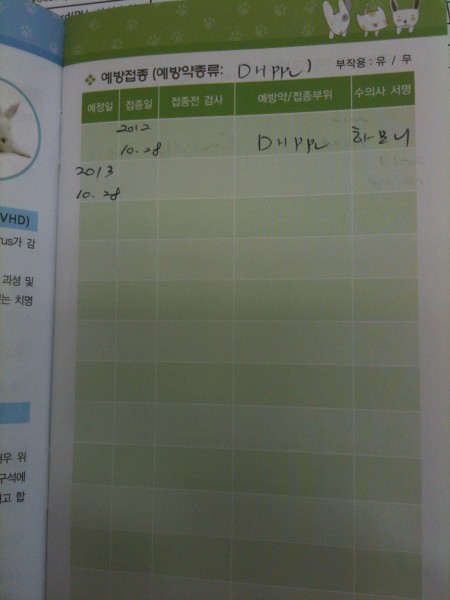 ❖ 예방접종 (예방약종류: DHPPL)
부작용 : 유 / 무
예정일 접종일 접종전 검사 예방약/접종부위 수의사 서명
2012
10. 28 DHPPL
2013
10. 28
VHD)
rus가 감
괴성 및
는 치명
우 위
구석에
고 합